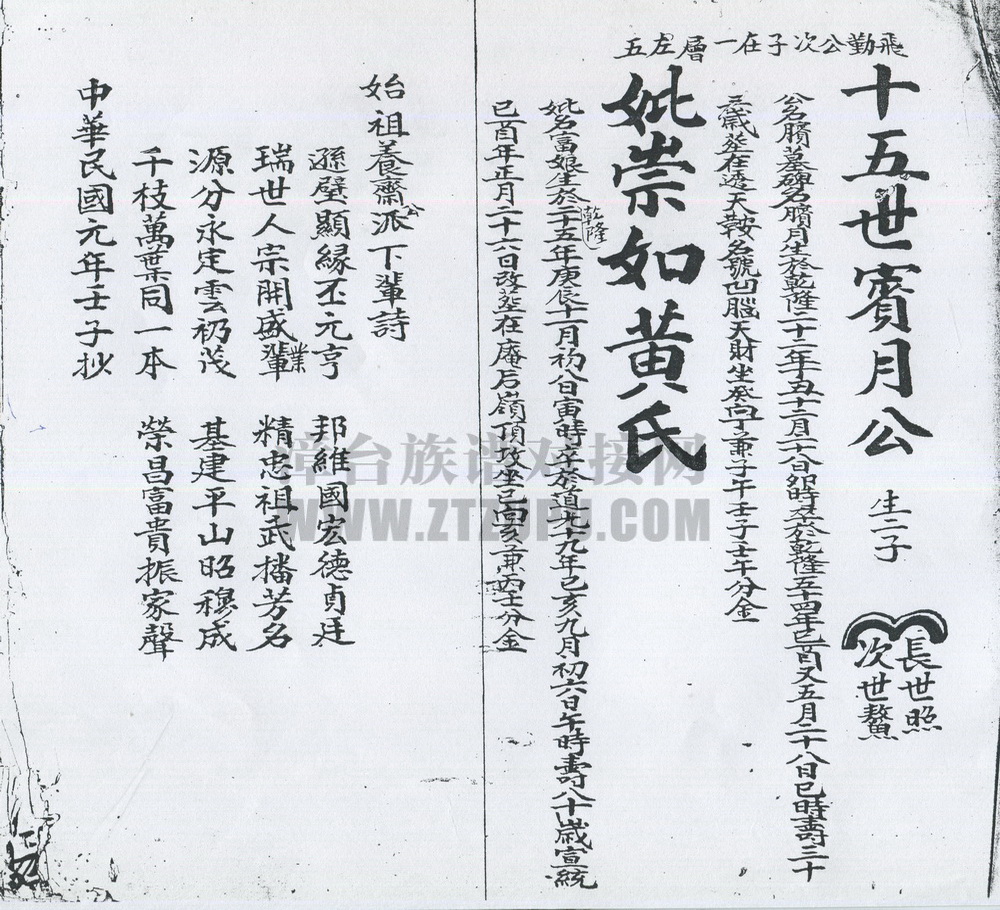 飛勤公次子在一層左五
十五世賓月公 生二子
長世照
次世鰲
公名臏墓碑名臏月生於乾隆二十二年丑十二月二十八日卯時卒於乾隆五十四年己酉又五月二十八日巳時壽三十
三歲葬在透天鞍名號凹腦天財坐癸向丁兼子午壬子壬午分金
妣崇如黃氏
妣名富娘生於乾隆二十五年庚辰十一月初八日寅時卒於道光十九年己亥九月初六日午時壽八十歲宣統
己酉年正月二十六日改葬在庵后嶺頂坟坐巳向亥兼丙壬分金
始祖養齋公派下輩詩
遜璧顯緣丕元亨 邦維國宏德貞廷
瑞世人宗開盛業輩 精忠祖武播芳名
源分永定雲礽茂 基建平山昭穆成
千枝萬葉同一本 榮昌富貴振家聲
中華民國元年壬子抄
漳台族谱对接网
WWW.ZTZUPU.COM